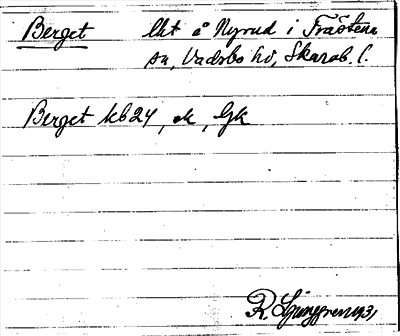 Berget lht å Nyrud i Fräötens
sn, Vadsbo hd, Skarab. l.
Berget kb24, ek, Gk
R. Ljunggren